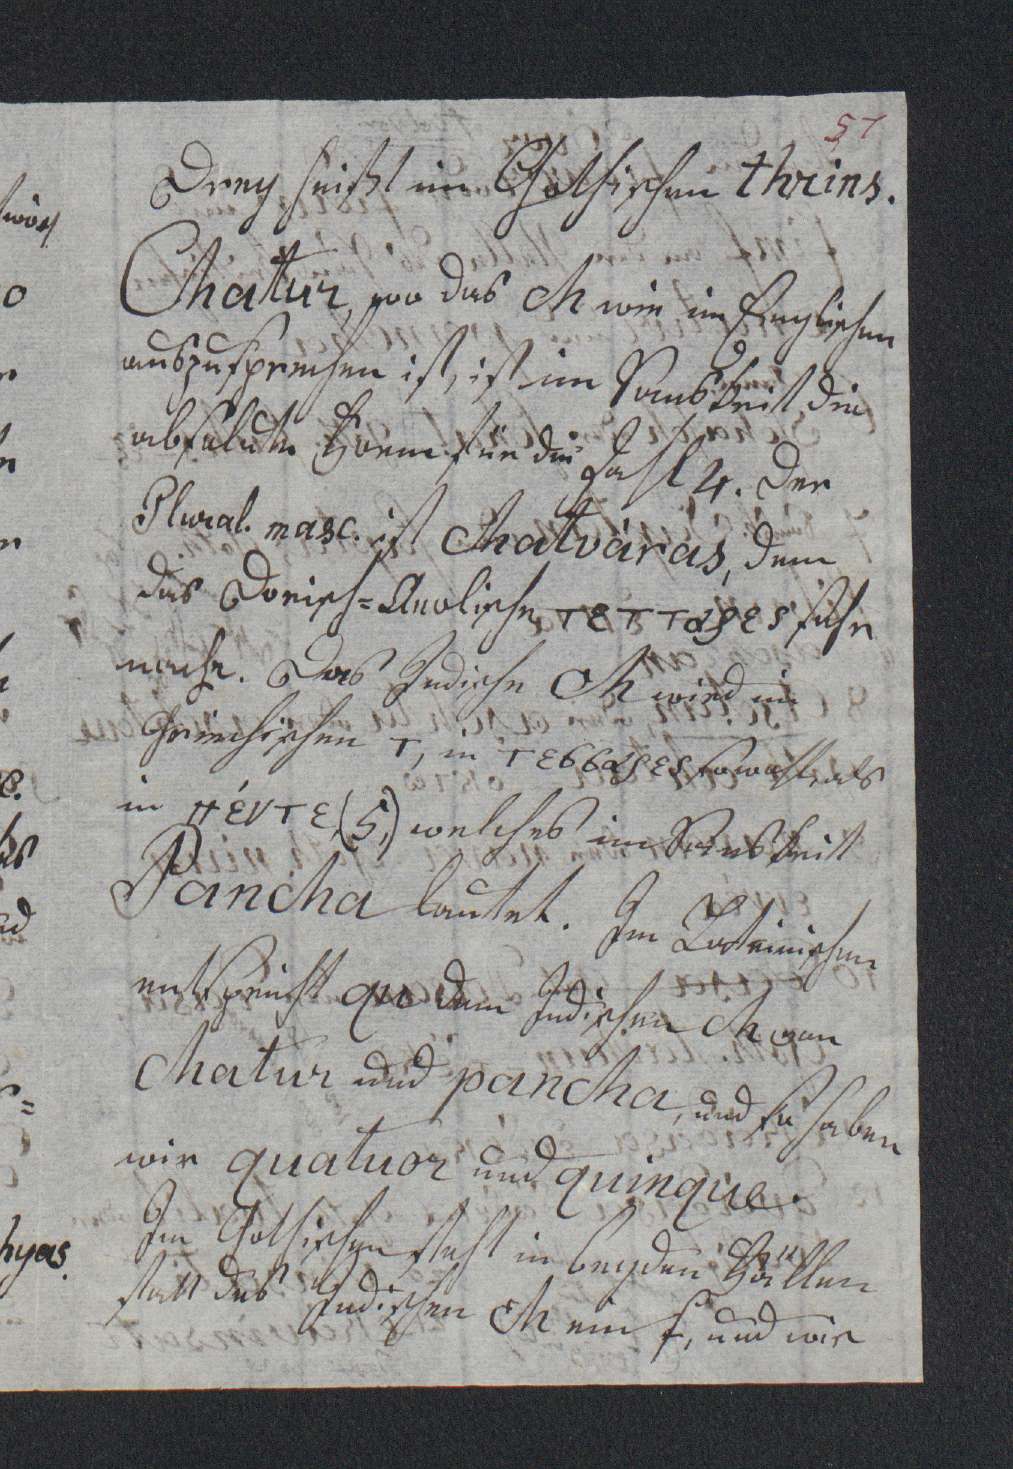 57
Drey heißt im Gothischen thrins.
Chatur, wo das ch wie im Englischen
auszusprechen ist, ist im Sanskrit die
absolute Form für die Zahl 4. Der
Plural. masc. ist chatvâras, dem
das Dorisch=Aeolische τετταρες sehr
nahe. Das Indische ch wird im
Griechischen τ, in τεσσαρες sowohl als
in πέντε (5,) welches im Sanskrit
Pancha lautet. Im Lateinischen
entspricht qu dem Indischen ch von
chatur und pancha, und so haben
wir quatuor und quinque.
Im Gothischen steht in beyden Fällen
statt des Indischen ch ein f, und wir
hyas.